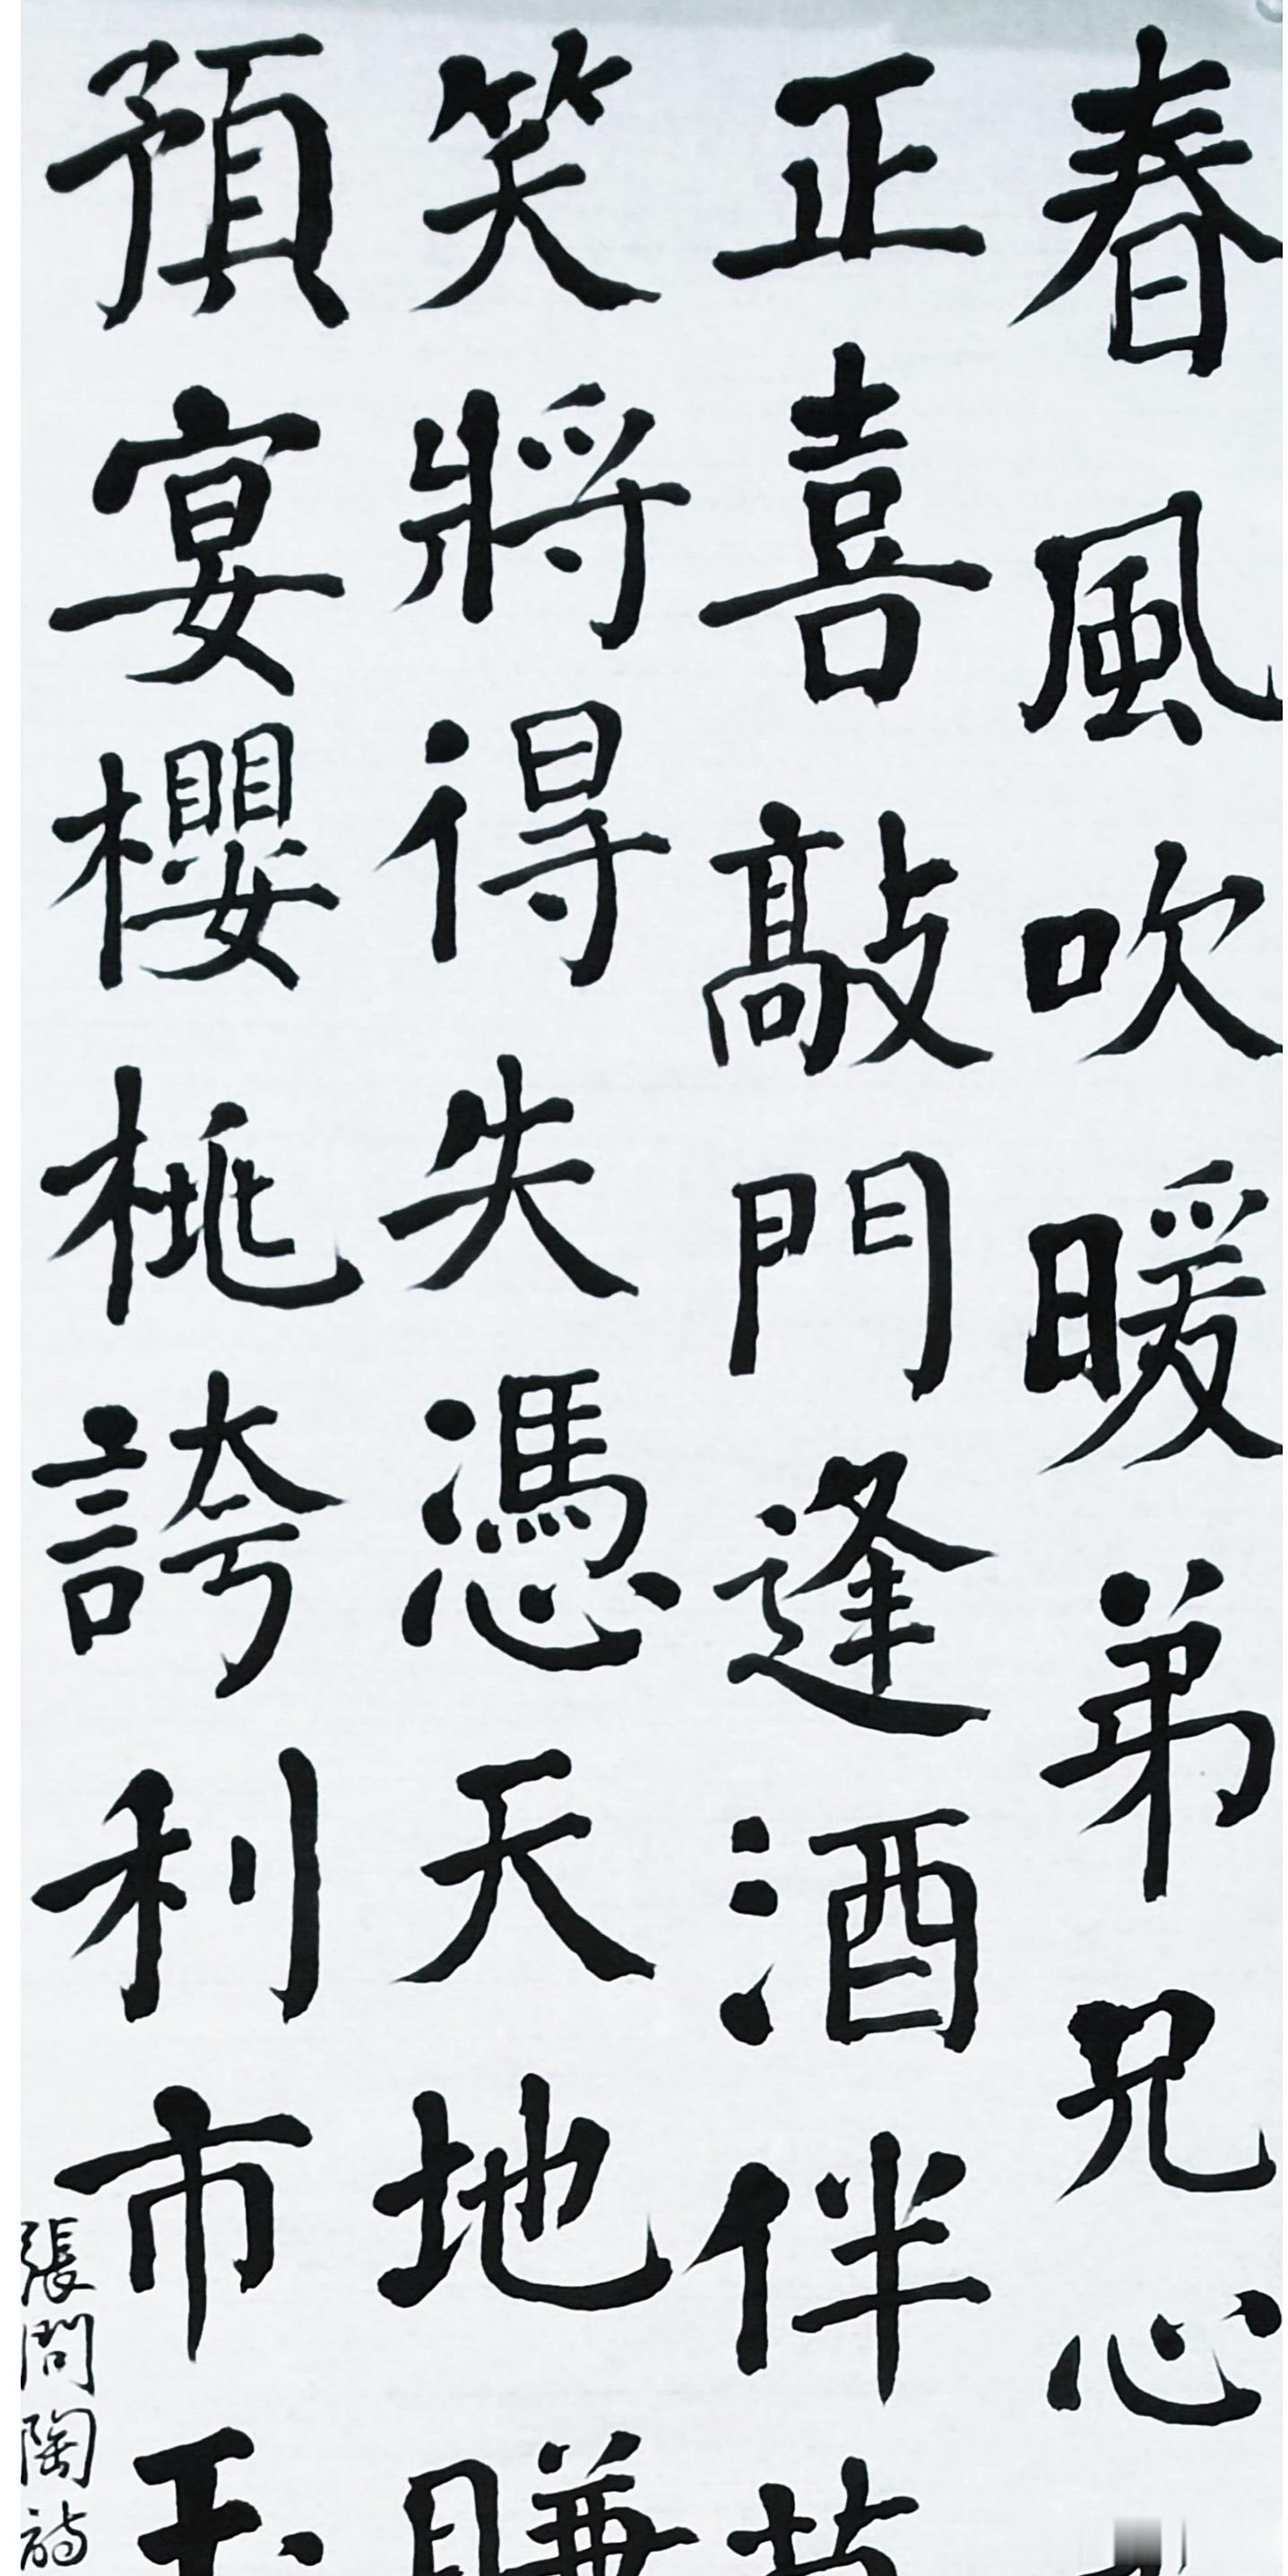 春風吹暖弟兄心
正喜敲門逢酒伴
笑將得失憑天地
預宴櫻桃誇利市
張問陶詩